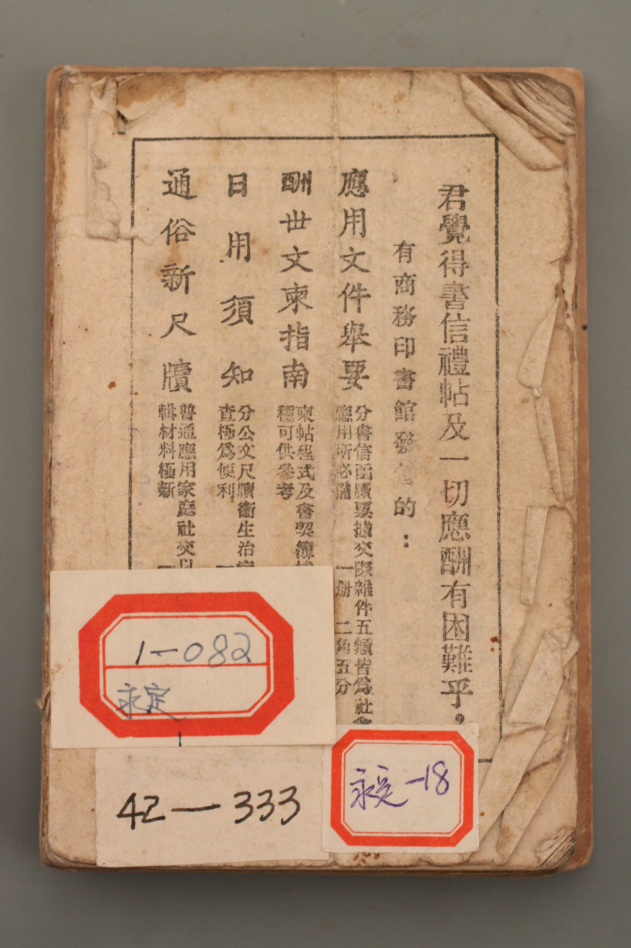 君覺得書信禮帖及一切應酬有困難乎？
有商務印書館發 的：
應用文件舉要
分書信函牘票據交際雜件五類皆爲社會
應用所必備 一册 二角五分
酬世文柬指南
柬帖程式及書契
種可供參考
日用須知
分公文尺牘衛生治
查極爲便利
通俗新尺牘
普通應用家庭社交
輯材料極新
1-082
永定
42-333
永定-18